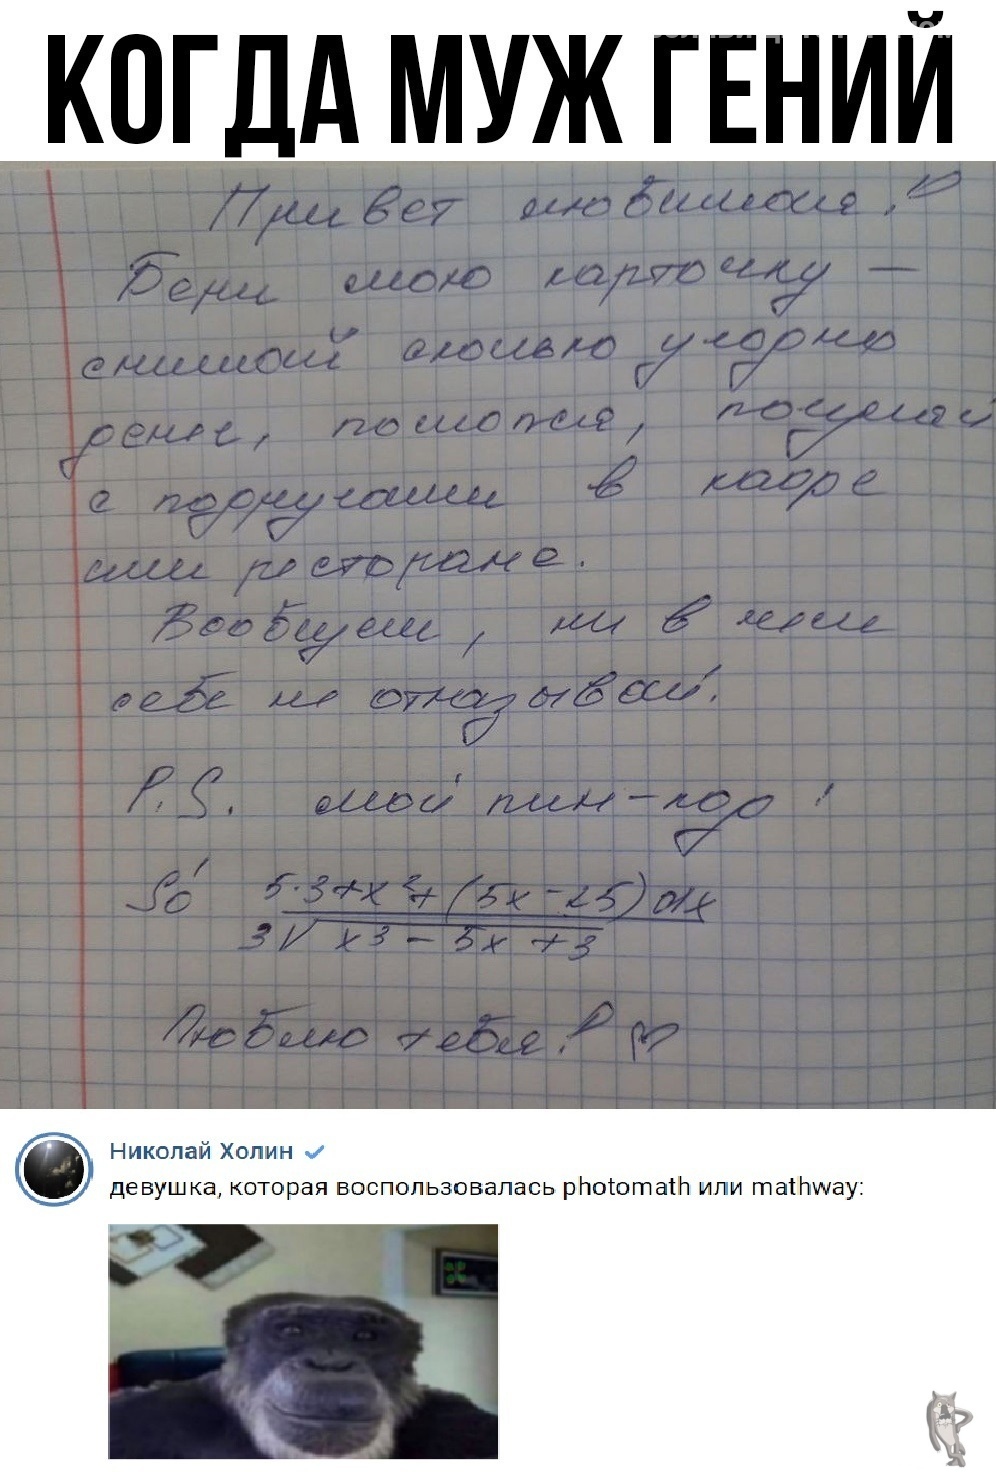 КОГДА МУЖ ГЕНИЙ
Привет любимая!
Бери мою карточку —
снимай сколько угодно
денег, пошопься, погуляй
с подругами в кафе
или ресторане.
Вообщем, ни в чём
себе не отказывай.
P.S. мой пин-код:
5·3+x²+(5x-25)dx
3√x3-5x+3
Люблю тебя!
Николай Холин
девушка, которая воспользовалась photomath или mathway: